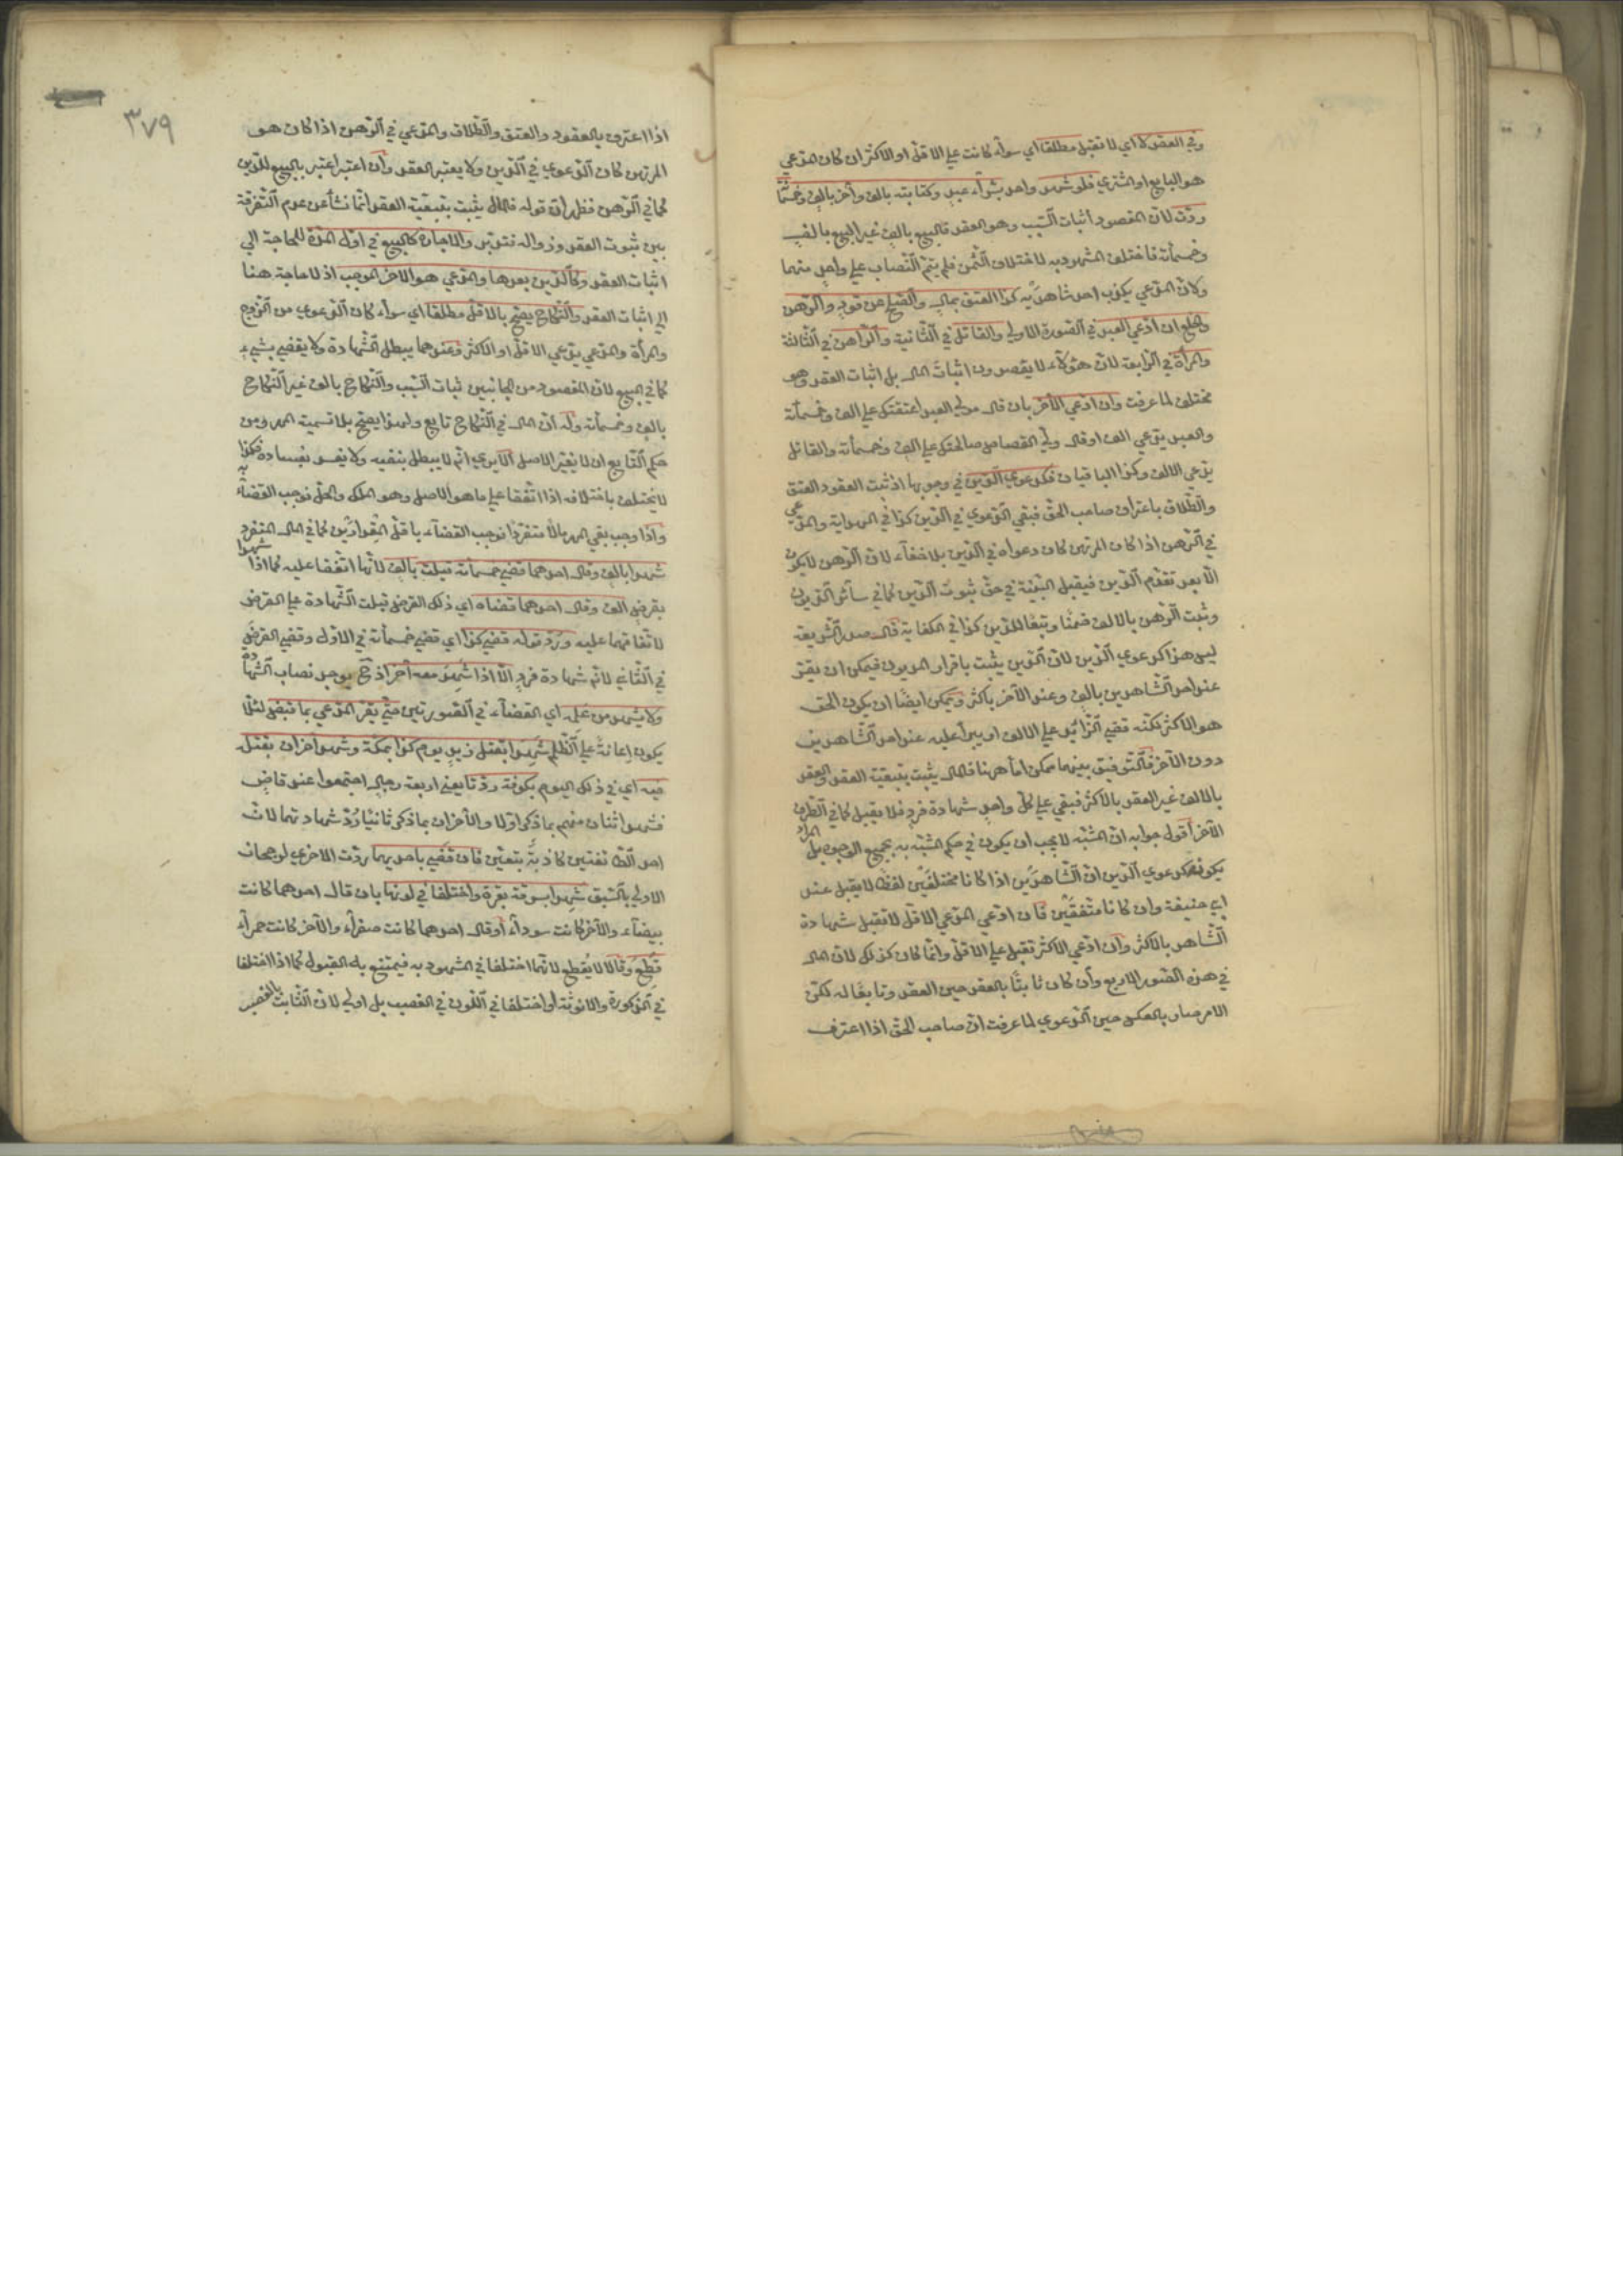 وفي العقد لا اي لا تقبل مطلقا اي سواء كانت علي الاقل او الاكثر ان كان المدعي
هو البايع او المشتري فلو شهد واحد بشراء عبد وكتابته بالف وآخر بالف وخمسمأ
ردّت لانّ المقصود اثبات السّبب وهو العقد فالبيع بالف غير البيع بالف
وخمسمأئة فاختلف المشهود به لاختلاف الثّمن فلم يتمّ النّصاب علي واحد منهما
ولانّ المدعي يكذب احد شاهديه كذا العتق بمال والصّلح عن قود والرّهن
والخلع ان ادّعي العبد في الصّورة الاولي والقاتل في الثّانية والرّاهن في الثّالثة
والمرأة في الرّابعة لانّ هؤلاء لا يقصدون اثبات المال بل اثبات العقد وهو
مختلف لما عرفت وان ادّعي الآخر بان قال مولي العبد اعتقتك علي الف وخمسمأئة
والعبد يدّعي الف او قال ولي القصاص صالحتك علي الف وخمسمأئة والقاتل
يدّعي الالف وكذا الباقيان فكدعوي الدّين في وجوهها اذ ثبت العقود العتق
والطّلاق باعتراف صاحب الحقّ فبقي الدّعوي في الدّين كذا في الهداية والمدّعي
في الرّهن اذا كان المرتهن كان دعواه في الدّين بلا خفاء لانّ الرّهن لا يكون
الّا بعد تقدّم الدّين فيقبل البيّنة في حقّ ثبوت الدّين كما في سائر الدّيون
وثبت الرّهن بالالف ضمنا وتبعا للدّين كذا في الكفاية قال صدر الشّريعة
ليس هذا كدعوي الدّين لانّ الدّين يثبت باقرار المديون فيمكن ان يقرّ
عند احد الشّاهدين بالف وعند الآخر باكثر ويمكن ايضا ان يكون الحق
هو الاكثر لكنّه قضي الزّائد علي الالف او يبرأ عليه عند احد الشّاهدين
دون الآخر فالتّوفيق بينهما ممكن امّا هنا فالمال يثبت بتبعيّة العقد والعقد
بالالف غير العقد بالاكثر فبقي علي كلّ واحد شهادة فرد فلا يقبل كما في الطّرف
الآخر اقول جوابه انّ المشبّه لا يجب ان يكون في حكم المشبّه به بجميع الوجوه بل المراد
بكونه كدعوي الدّين انّ الشّاهدين اذا كانا مختلفين لفظا لا يقبل عند
ابي حنيفة وان كانا متّفقين فان ادّعي المدّعي الاقلّ لا تقبل شهادة
الشّاهد بالاكثر وان ادّعي الاكثر تقبل علي الاقلّ وانّما كان كذلك لانّ المال
في هذه الصّور الاربع وان كان ثابتا بالعقد حين العقد وتابعا له لكنّ
الامر صار بالعكس حين الدّعوي لما عرفت انّ صاحب الحقّ اذا اعترف
٣٧٩
اذا اعترف بالعقود والعتق والطّلاق والمدّعي في الرّهن اذا كان هو
المرتهن كان الدّعوي في الدّين ولا يعتبر العقد وان اعتبر اعتبر بالتبع للدّين
كما في الرّهن فظهر انّ قوله فالمال يثبت بتبعيّة العقد انّما نشأ من عدم التّفرقة
بين ثبوت العقد وزواله فتدبّر والاجارة كالبيع في اوّل المدّة للحاجة الي
اثبات العقد وكالدّين بعدها والمدّعي هو الآخر الموجب اذ لا حاجة هنا
الي اثبات العقد والنّكاح يصحّ بالاقلّ مطلقا اي سواء كان الدّعوي من الزّوج
والمرأة والمدّعي يدّعي الاقلّ او الاكثر وعندهما يبطل الشّهادة ولا يقضي بشيء
كما في البيع لانّ المقصود من الجانبين ثبات السّبب والنّكاح بالف غير النّكاح
بالف وخمسمأئة وله انّ المال في النّكاح تابع ولهذا يصحّ بلا تسمية المهر ومن
حكم التّابع ان لا يغيّر الاصل الا يري انّه لا يبطل بنفيه ولا يفسد بفساده فكذا
لا يختلف باختلافه اذا اتّفقا علي ما هو الاصل وهو الملك والحلّ فوجب القضاء به
واذا وجب بقي المهر مالا منفردا فوجب القضاء باقلّ المقدارين كما في المال المنفرد
شهدا بالف وقال احدهما قضي خمسمأئة قبلت بالف لانّهما اتّفقا عليه كما اذا شهدا
بقرض الف وقال احدهما قضاه اي ذلك القرض قبلت الشّهادة علي القرض
لاتّفاقهما عليه وردّ قوله قضي كذا اي قضي خمسمأئة في الاوّل وقضي القرض
في الثّاني لانّه شهادة فرد الّا اذا شهد معه آخر اذ ح يوجد نصاب الشّهادة
ولا يشهد من علمه اي القضاء في الصّورتين حتّي يقرّ المدّعي بما قبض لئلّا
يكون اعانة علي الظّلم شهدا بقتل زيد يوم كذا بمكّة وشهد آخران بقتله
فيه اي في ذلك اليوم بكوفة ردّتا يعني اربعة رجال اجتمعوا عند قاض
فشهد اثنان منهم بما ذكر اوّلا والآخران بما ذكر ثانيا ردّ شهادتهما لانّ
احد الطّائفتين كاذبة بيقين فان قضي باحديهما ردّت الاخري لرجحان
الاولي بالسّبق شهدا بسرقة بقرة واختلفا في لونها بان قال احدهما كانت
بيضاء والآخر كانت سوداء او قال احدهما كانت صفراء والآخر كانت حمراء
قطع وقالا لا يقطع لانّهما اختلفا في المشهود به فيمتنع به القبول كما اذا اختلفا
في الذّكورة والانوثة او اختلفا في اللّون في الغصب بل اولي لانّ الثّابت بالغصب